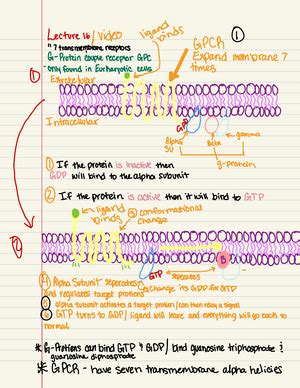 Lecture 16 / video
ligand binds
①
"7 transmembrane receptors
G-Protein couple receptor GPC
-only found in Eukaryotic cells
GPCR
Expand membrane 7 times
①
Extracellular
Intracellular
GDP
Alpha
Beta
gamma
g-protein
① If the protein is inactive then
GDP will bind to the alpha subunit
② If the protein is active then it will bind to GTP
ligand binds
③ conformational change
②
GTP
seperates
B
Exchange its GDP for GTP
④ Alpha Subunit seperates
and regulates target proteins
⑤ alpha subunit activates a target protein/can then relay a signal
⑥ GTP turns to GDP/ ligand will leave and everything will go back to
normal
* G-Proteins can bind GTP & GDP/ bind guanosine triphosphate &
guanosine diphosphate
* GPCR - have seven transmembrane alpha helicies